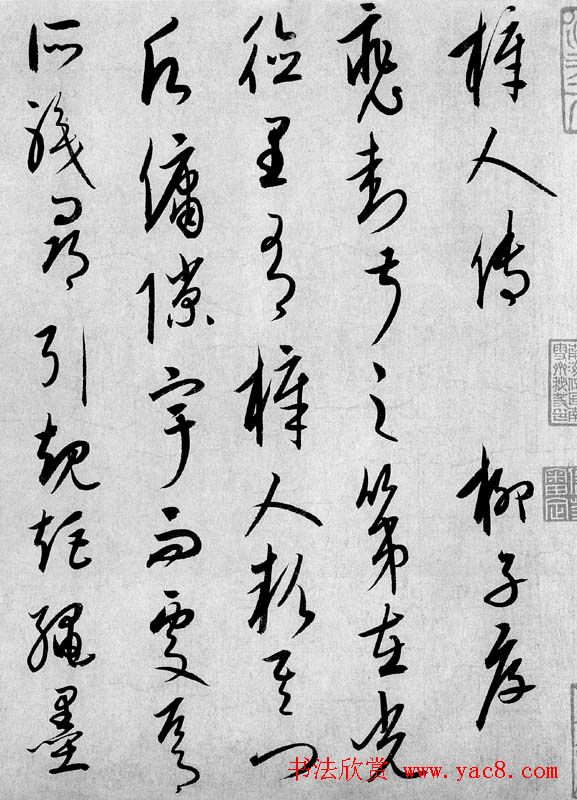 梓人傳 柳子厚
裴封叔之第在光
德里有梓人款其門
願傭隙宇而處焉
所職尋引規矩繩墨
书法欣赏 www.yac8.com